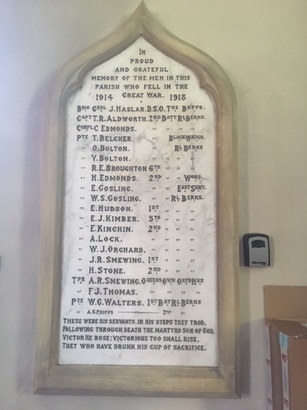 IN
PROUD
AND GRATEFUL
MEMORY OF THE MEN IN THIS
PARISH WHO FELL IN THE
GREAT WAR.
1914 1918
BRIG GENL J. HASLAR. D.S.O. THE BUFFS.
CAPT T.R. ALDWORTH. 2ND BATT RL BERKS.
C. EDMONDS. " " "
PTE T. BELCHER. BLACK WATCH.
" O. BOLTON. RL BERKS
" Y. BOLTON. " "
" R.E. BROUGHTON 6TH " "
" H. EDMONDS. 2ND " WORC.
" E. GOSLING. EAST SURY.
" W.S. GOSLING. " RL BERKS.
" E. HUDSON. 1ST " "
" E.J. KIMBER. 5TH " "
" E. KINCHIN. 2ND " "
" A. LOCK. " " "
" W.J. ORCHARD. " " "
" J.R. SMEWING. 1ST " "
" H. STONE. 2ND " "
TPR A.R. SMEWING. QUEENS OWN OXFORDS
" F.J. THOMAS. " " "
PTE W.G. WALTERS. 1ST BATT RL BERKS
" A.G. PHIPPS 2ND "
THESE WERE HIS SERVANTS, IN HIS STEPS THEY TROD,
FOLLOWING THROUGH DEATH THE MARTYRD SON OF GOD,
VICTOR HE ROSE; VICTORIOUS TOO SHALL RISE,
THEY WHO HAVE DRUNK HIS CUP OF SACRIFICE.